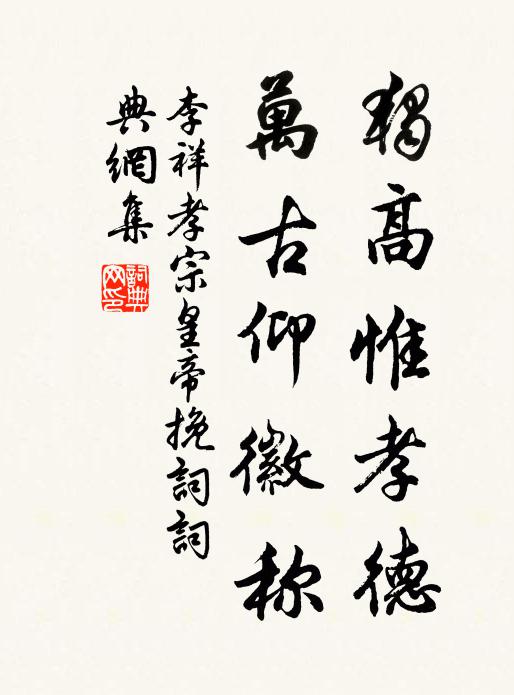 獨高惟孝德
萬古仰徽称
李祥孝宗皇帝挽詞詞
典網集
詞典
网印